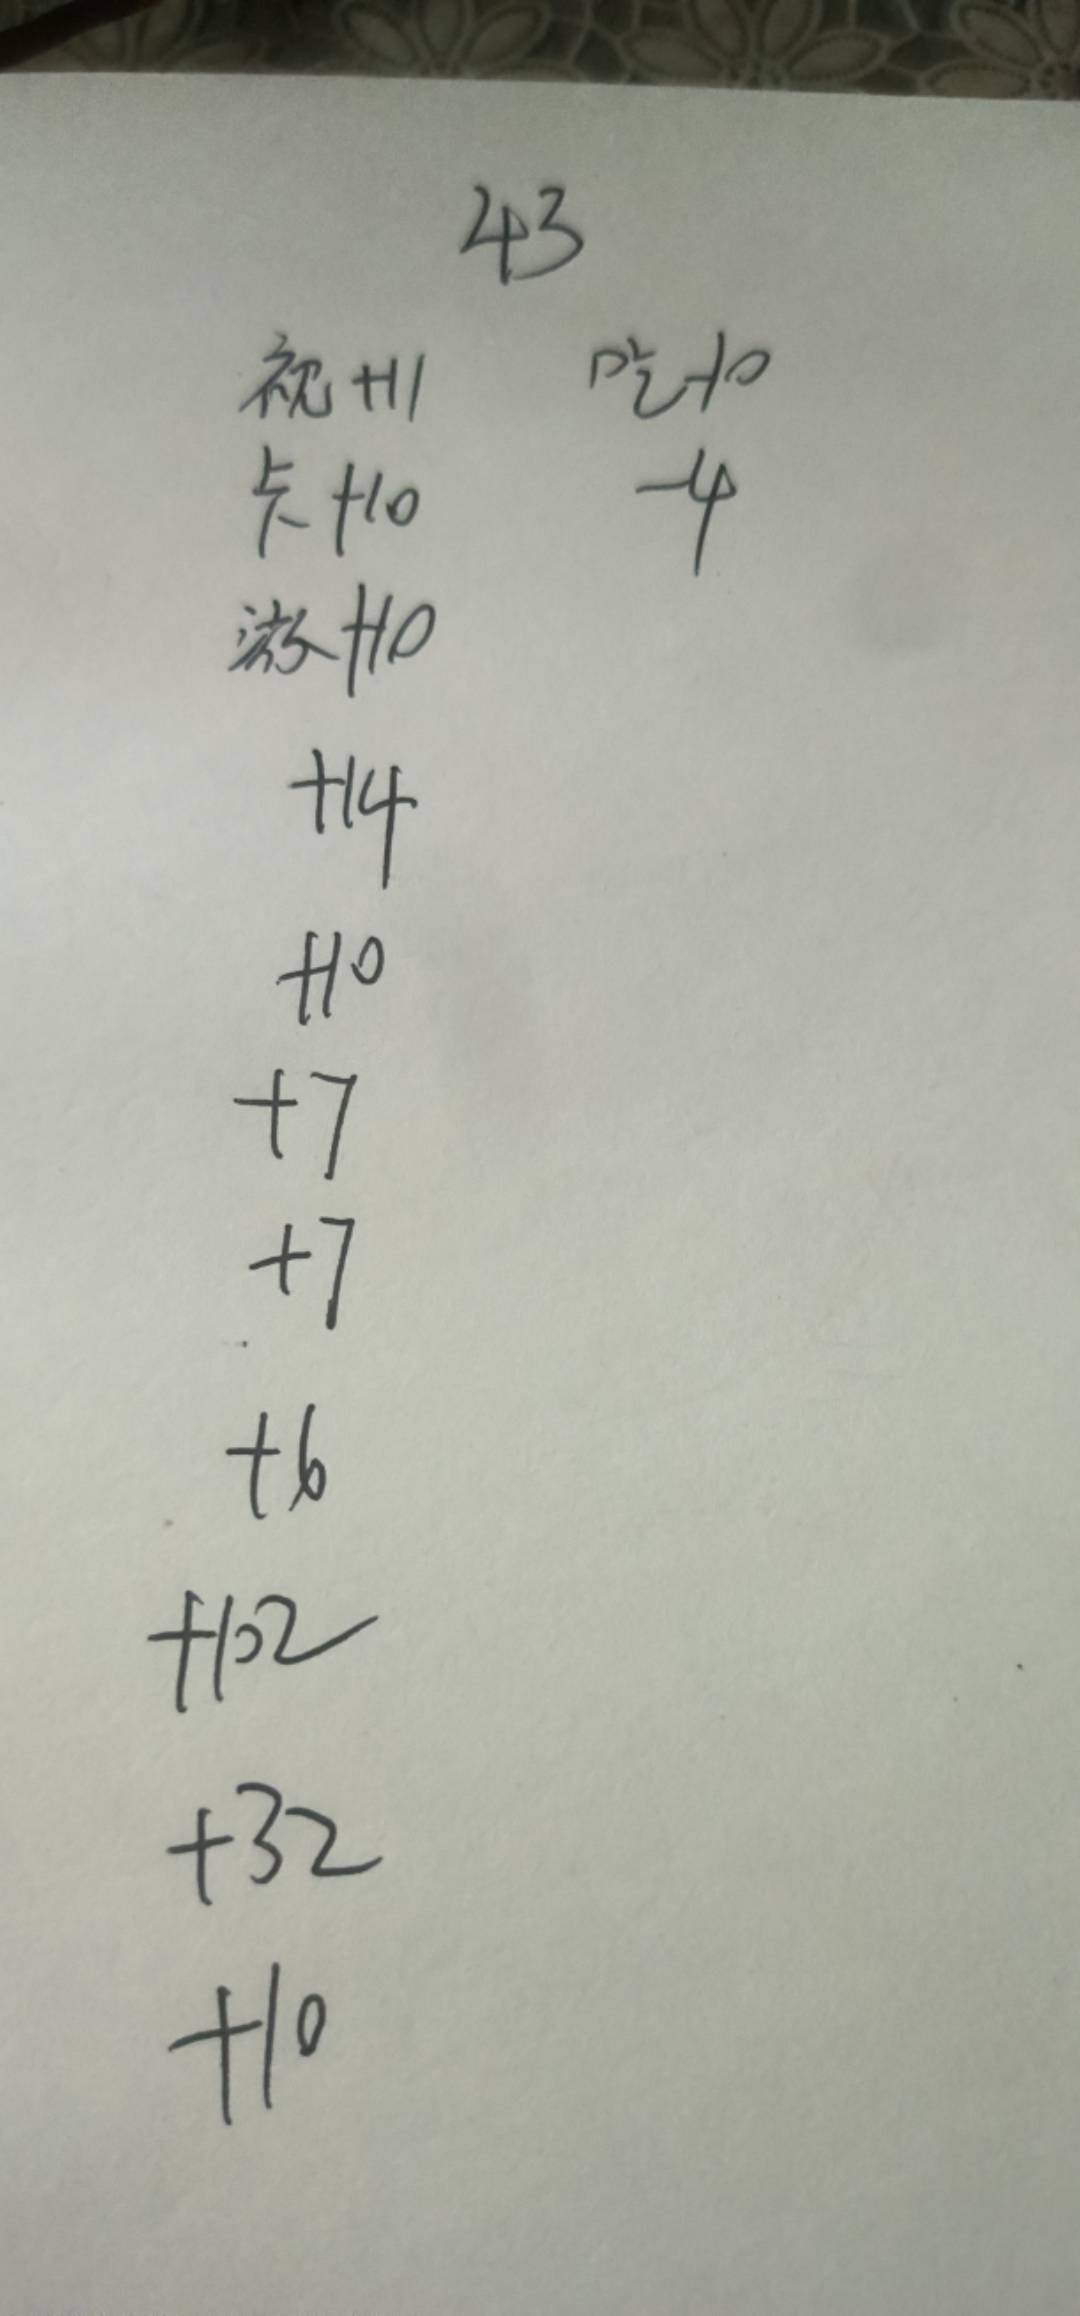 43
视+11 吃-10
卡+10 -4
游+10
+14
+10
+7
+7
+6
+102
+32
+10